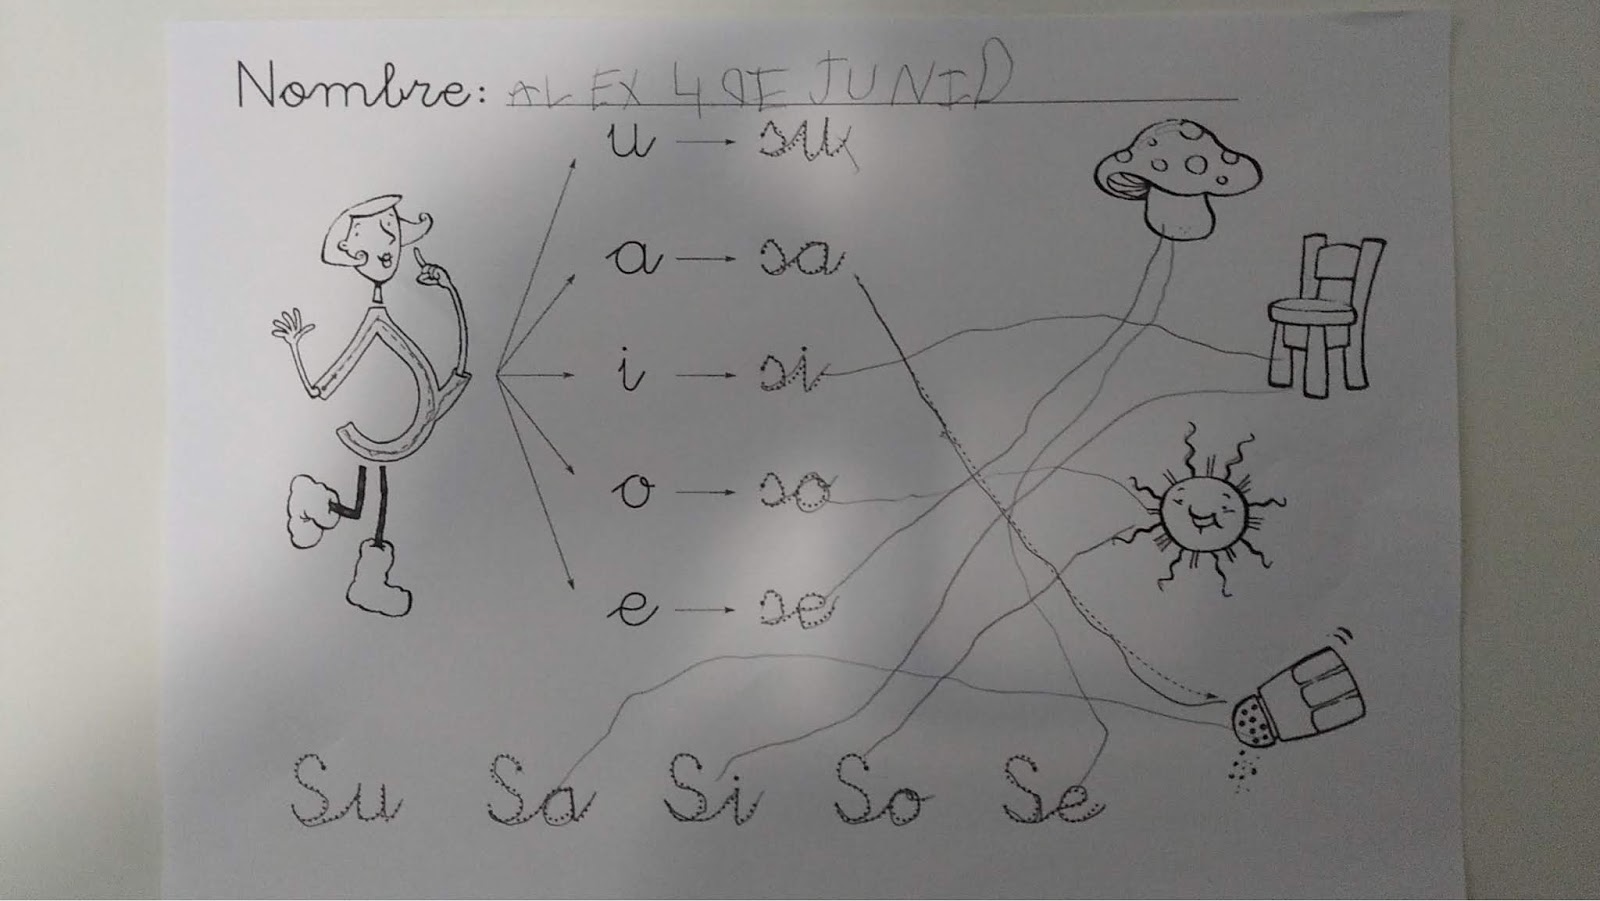 Nombre: ALEX 4 DE JUNIO
u su
a sa
i si
o so
e se
Su Sa Si So Se